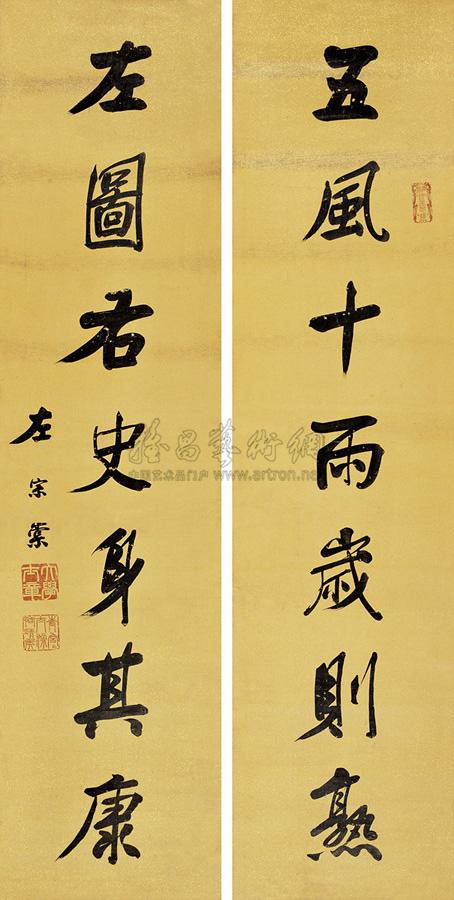 五風十雨歲則熟
左圖右史身其康
左宗棠
大學士章
雅昌藝術網
中国艺术品门户 www.artron.net